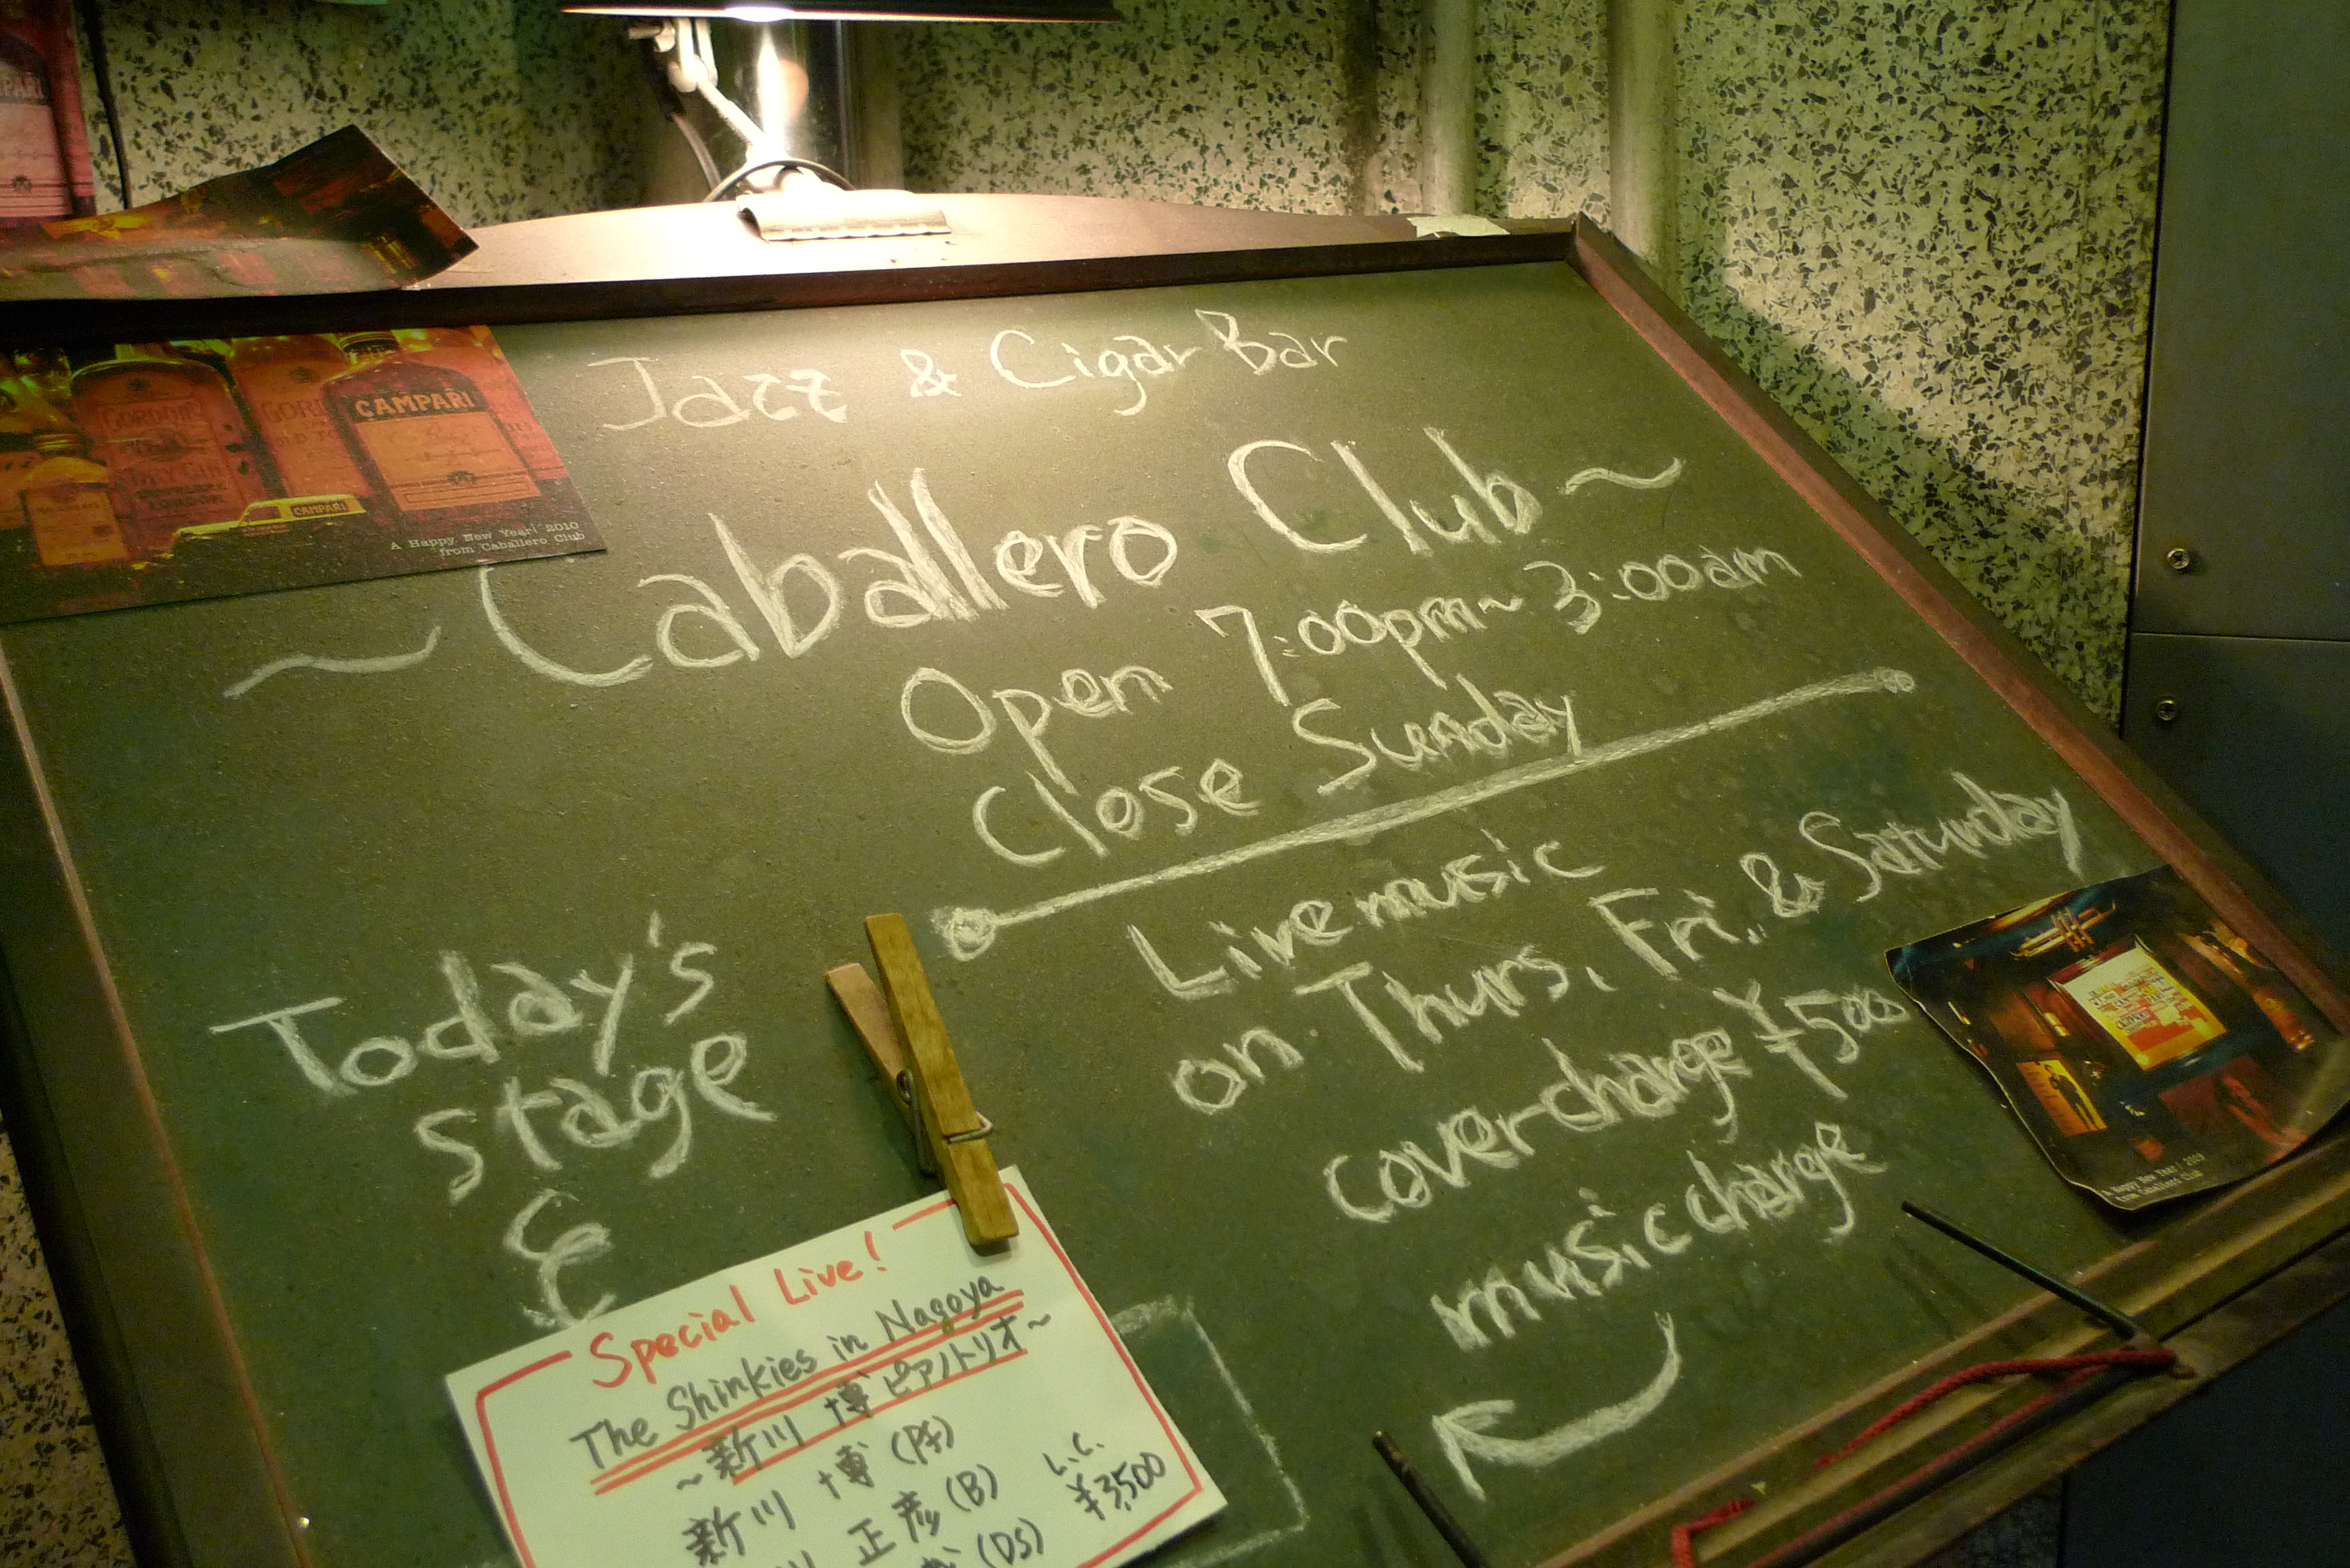 Jazz & Cigar Bar
~Caballero Club~
Open 7:00pm~3:00am
Close Sunday
Live music
on Thurs, Fri, & Saturday
cover-charge ¥500
music charge
Today's
stage
Special Live!
The Shinkies in Nagoya
~新川 博 ピアノトリオ~
新川 博 (Pf)
正彦 (B)
(DS)
L.C.
¥3,500
CAMPARI
CAMPARI
GORDON'S
DRY GIN
A Happy New Year! 2010
from Caballero Club
A Happy New Year!
from Caballero Club